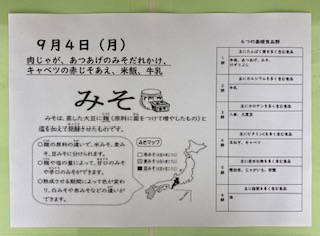 9月4日(月)
肉じゃが、あつあげのみそだれかけ、
キャベツの赤じそあえ、米飯、牛乳
みそ
みそは、蒸した大豆に麹(原料に菌をつけて増やしたもの)と
塩を加えて発酵させたものです。
○麹の原料の違いで、米みそ、麦み
そ、豆みそに分けられます。
○麹や塩の量によって、甘口のみそ
や辛口のみそができます。
○熟成させる期間によって色が変わ
り、白みそや赤みそなどの違いが
できます。
みそマップ
6つの基礎食品群
1群
主にたんぱく質を多く含む食品
2群
主にカルシウムを多く含む食品
牛乳
3群
主にカロテンを多く含む食品
4群
主にビタミンCを多く含む食品
5群
主に炭水化物を多く含む食品
6群
主に脂質を多く含む食品